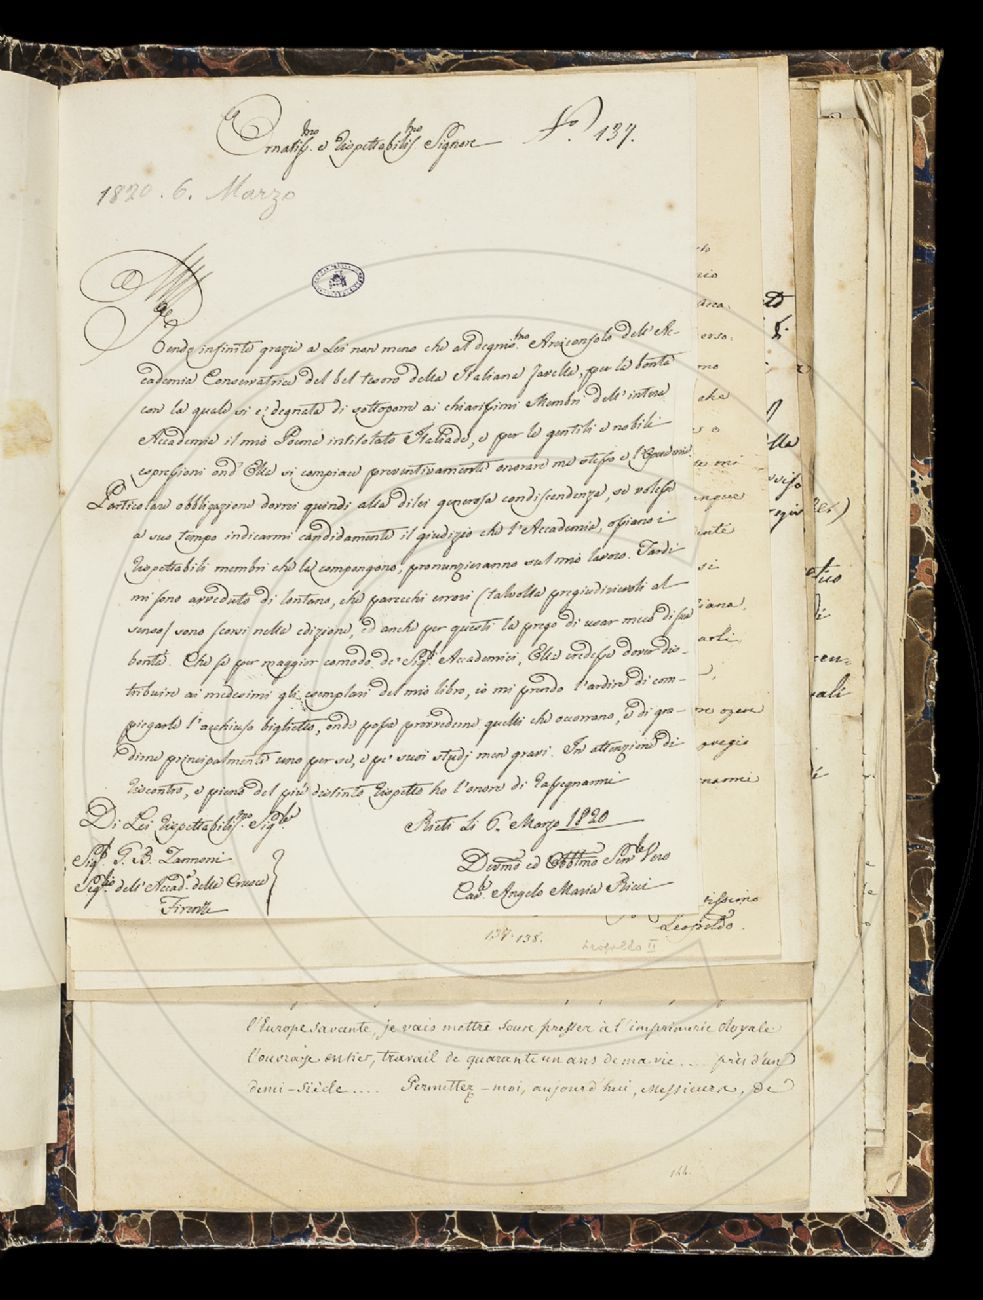 Ornatiss.mo e Rispettabiliss.mo Signore N.o 137.
1820. 6. Marzo
Rendo infinite grazie a Lei non meno che al degniss.mo Arciconsolo dell'Ac-
cademia Conservatrice del bel tesoro della Italiana favella, per la bontà
con la quale si è degnata di sottoporre ai chiarissimi Membri dell'intera
Accademia il mio Poema intitolato Italiade, e per le gentili e nobili
espressioni ond'Ella si compiace preventivamente onorare me stesso e l'Epopea mia.
Particolare obbligazione dovrei quindi alla di lei generosa condiscendenza, se volesse
a suo tempo indicarmi candidamente il giudizio che l'Accademia, o siano i
Rispettabili membri che la compongono, pronunzieranno sul mio lavoro. Tardi
mi sono avveduto di lontano, che parecchi errori (talvolta pregiudicievoli al
senso) sono scorsi nella edizione, ed anche per questi la prego di usar meco di sua
bontà. Che se per maggior comodo de' Sig.ri Accademici, Ella credesse dover dis-
tribuire ai medesimi gli esemplari del mio libro, io mi prendo l'ardire di com-
piegarle l'acchiuso biglietto, onde possa provvederne quelli che occorrano, e di gra-
dirne principalmente uno per se, e pe' suoi studj men gravi. In attenzione di
riscontro, e pieno del più distinto rispetto ho l'onore di rassegnarmi
Di Lei Rispettabiliss.mo Sig.re
Rieti li 6. Marzo 1820
Sig.r G. B. Zannoni
Seg.rio dell'Accad.a della Crusca
Firenze
Devmo ed Obblmo Serv.re Vero
Cav.r Angelo Maria Ricci
Leopoldo.
137. 138.
Leopoldo II
l'Europe savante, je vais mettre sous presser à l'imprimerie Royale
l'ouvraje entier, travail de quarante un ans de ma vie.... près d'un
demi-siècle.... Permettez-moi, aujourd'hui, Messieurs, de
144.